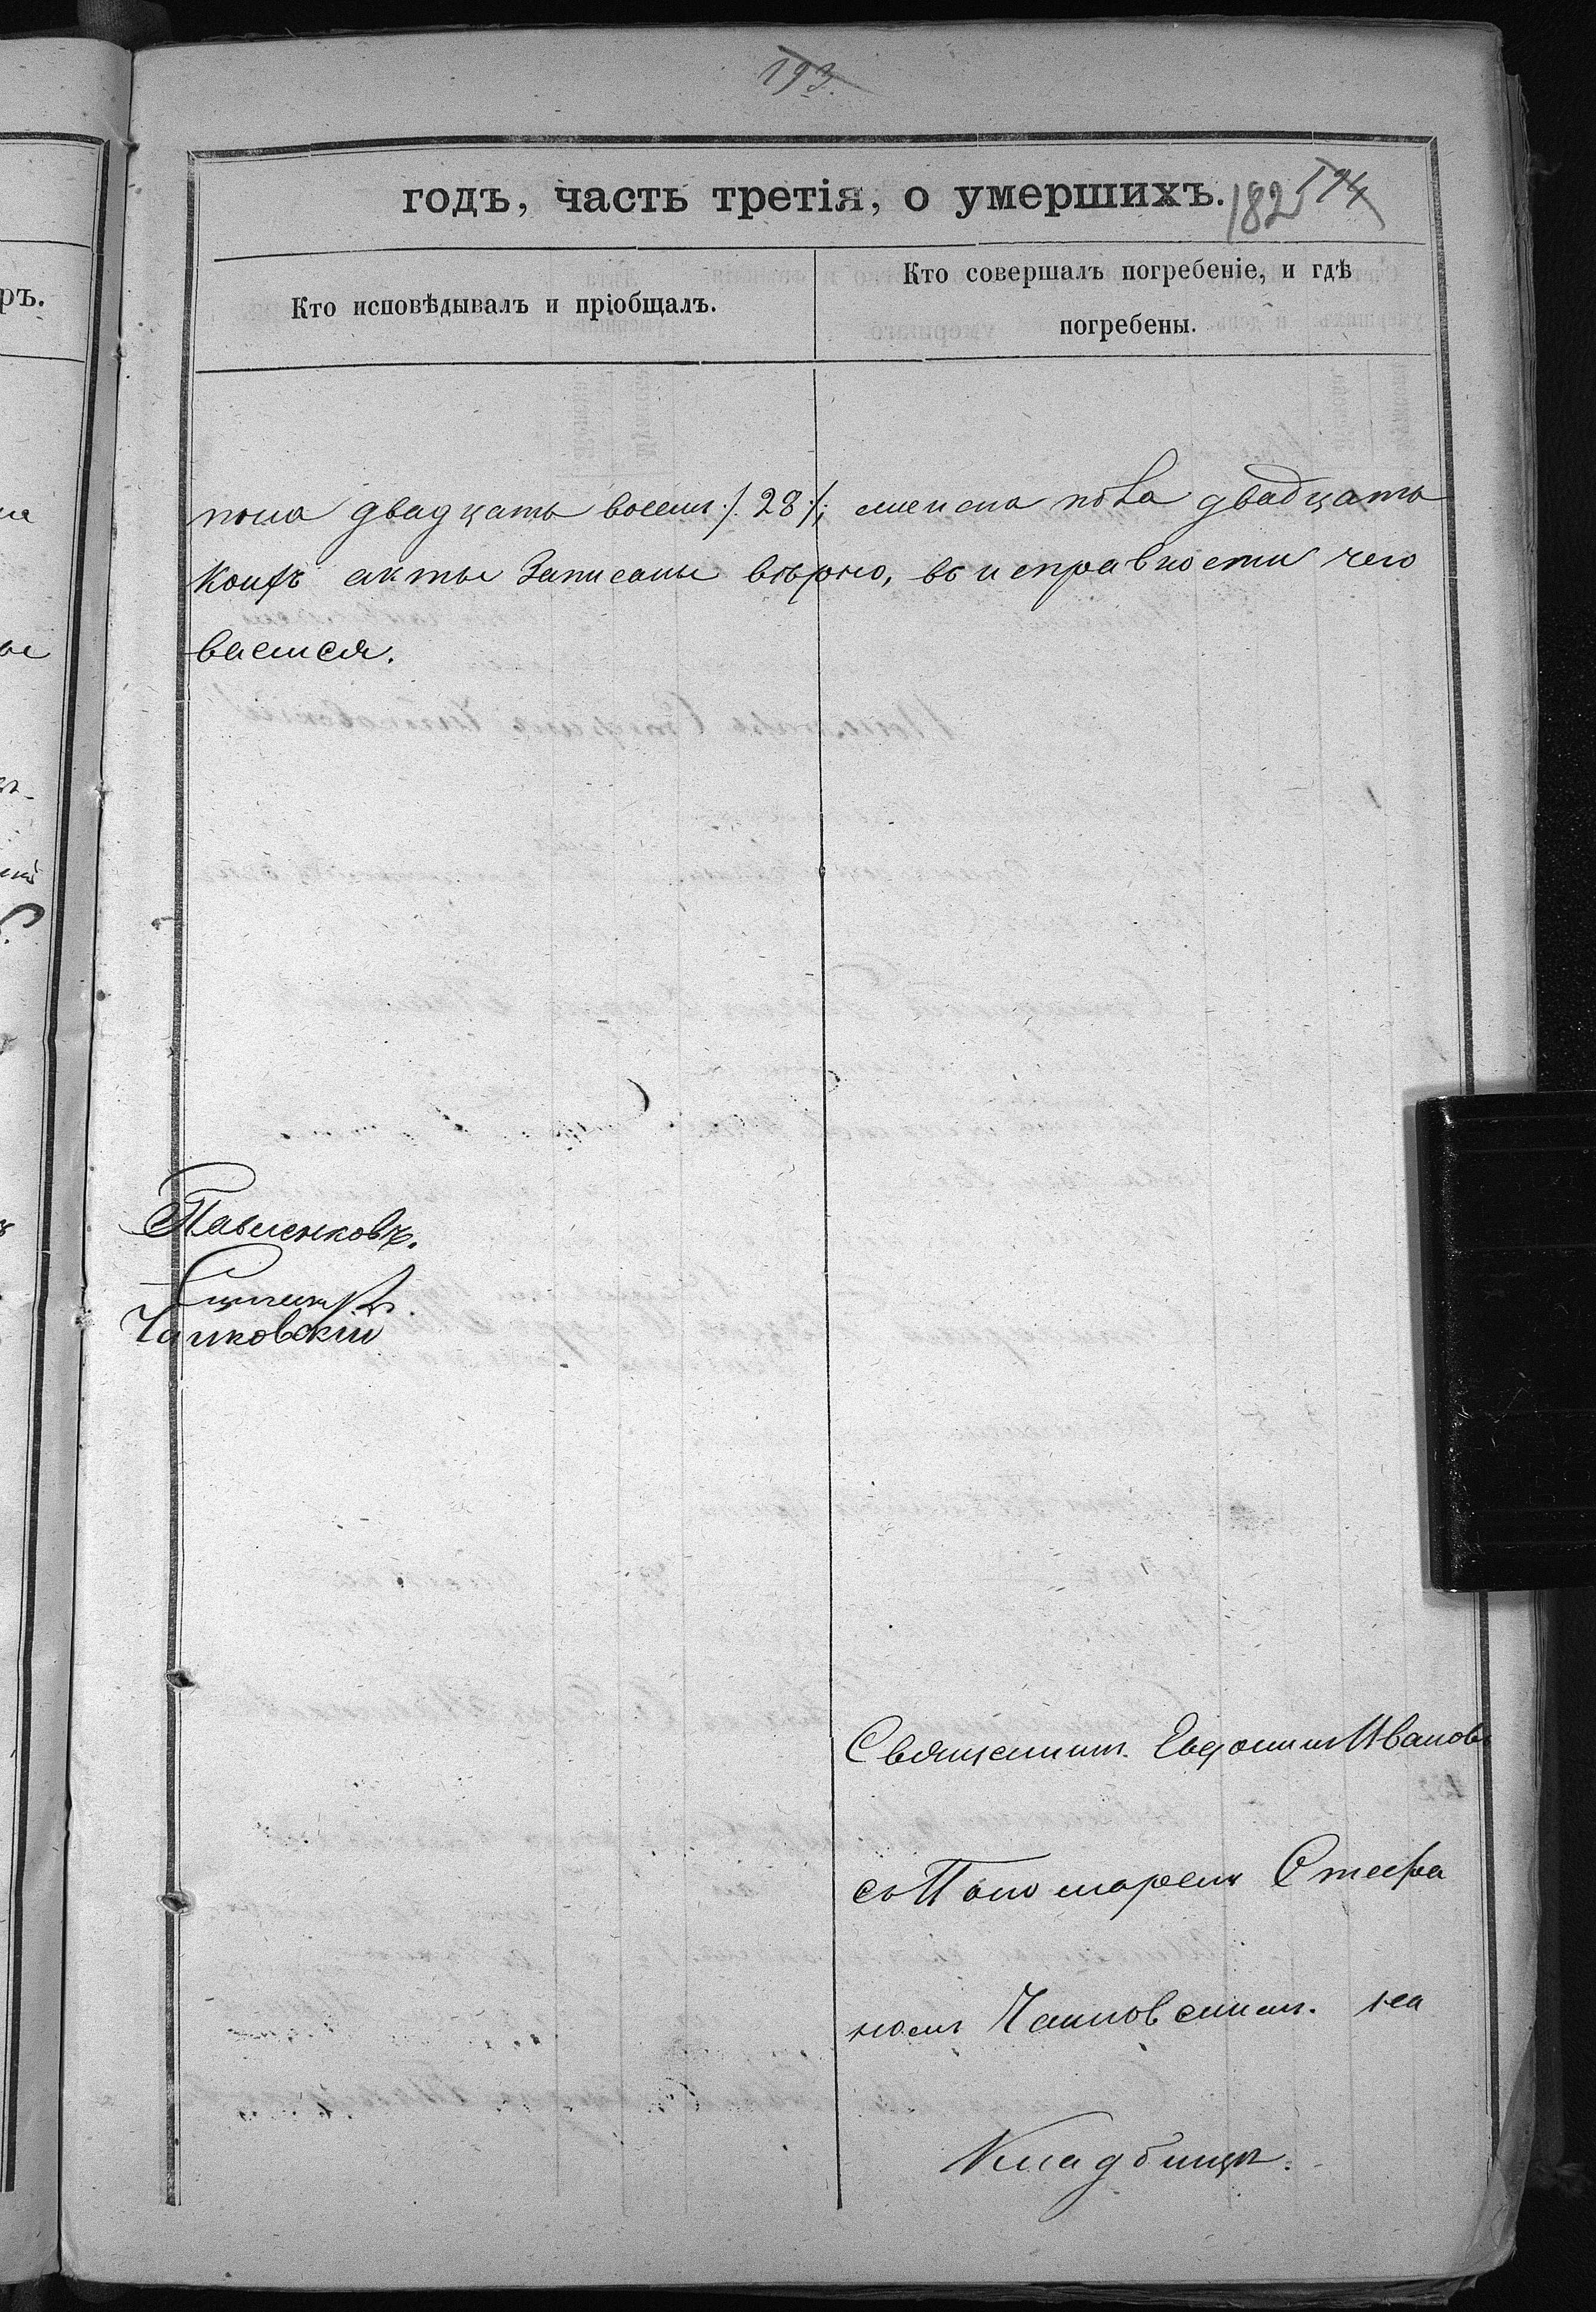 193.
годъ, часть третія, о умершихъ.
182 194
ръ.
Кто исповѣдывалъ и пріобщалъ.
Кто совершалъ погребеніе, и гдѣ
погребены.
пола двадцать восемь ./. 28 ./.; женска пола двадцать
коихъ акты записаны вѣрно, въ исправности чего
ваемся.
Павленковъ.
Чайковскій
Священник. Евфимій Ивановъ
съ Пономаремъ Стефа
номъ Чайковским. на
Кладбищѣ.